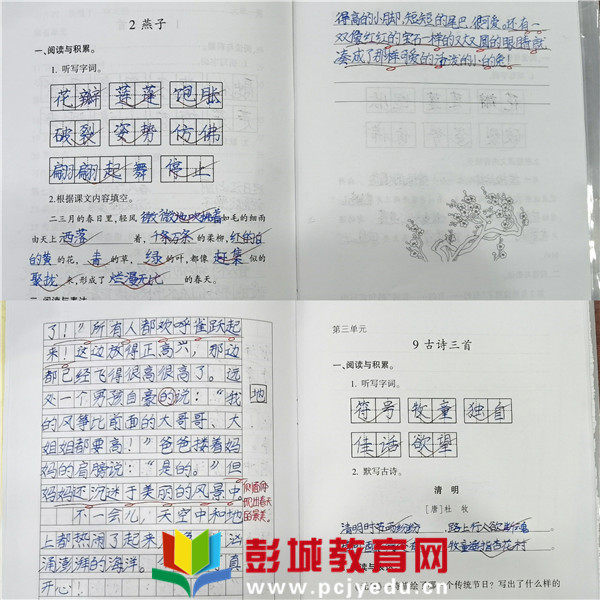 2 燕子
一、阅读与积累。
1. 听写字词。
花瓣 莲蓬 饱胀
破裂 姿势 仿佛
翩翩起舞 停止
2.根据课文内容填空。
二三月的春日里，轻风微微地吹拂着如毛的细雨
由天上洒落着，千条万条的柔柳，红的白
的黄的花，青的草，绿的叶，都像赶集似的
聚拢来，形成了烂漫无比的春天。
得高的小脚，短短的尾巴，很可爱。还有一
双像红红的宝石一样的又大又圆的眼睛就
凑成了那样可爱的活泼的小白兔！
了！”所有人都欢呼雀跃起
来！这边放得正高兴，那边
都已经飞得很高很高了。远
处一个男孩自豪的说：“我 地
的风筝比前面的大哥哥、大
姐姐都要高！”爸爸搂着妈
妈的肩膀说：“是的。”但
妈妈还沉迷于美丽的风景中
不一会儿，天空中和地
上都热闹了起来
澎湃的海洋。
开心！
第三单元
9 古诗三首
一、阅读与积累。
1. 听写字词。
符号 牧童 独自
佳话 欲望
2. 默写古诗。
清明
[唐]杜牧
清明时节雨纷纷，路上行人欲断魂。
牧童遥指杏花村
个传统节日？写出了什么样的
彭城教育网
www.pcjyedu.cn